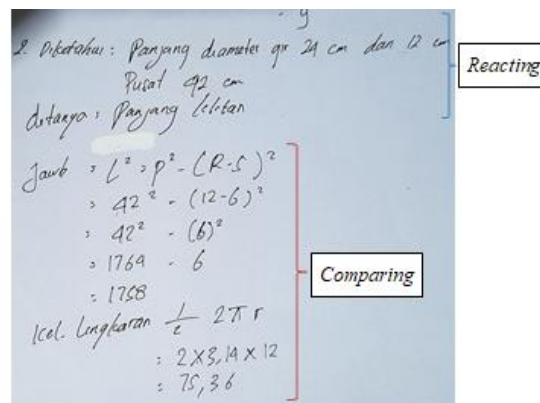 2. Diketahui : Panjang diameter gir 24 cm dan 12 cm
Pusat 42 cm
ditanya : Panjang lilitan
Jawb = L² = P² - (R-S)²
= 42² - (12-6)²
= 42² - (6)²
= 1764 - 6
= 1758
Kel. Lingkaran 1/2 2πr
= 2 x 3,14 x 12
= 75,36
Reacting
Comparing